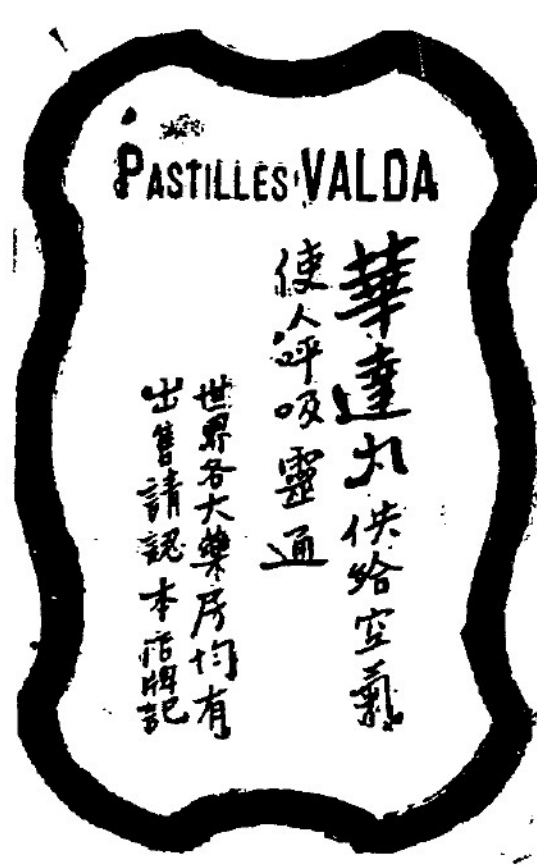 PASTILLES VALDA
華達丸供給空氣
使人呼吸靈通
世界各大藥房均有
出售請認本牌記